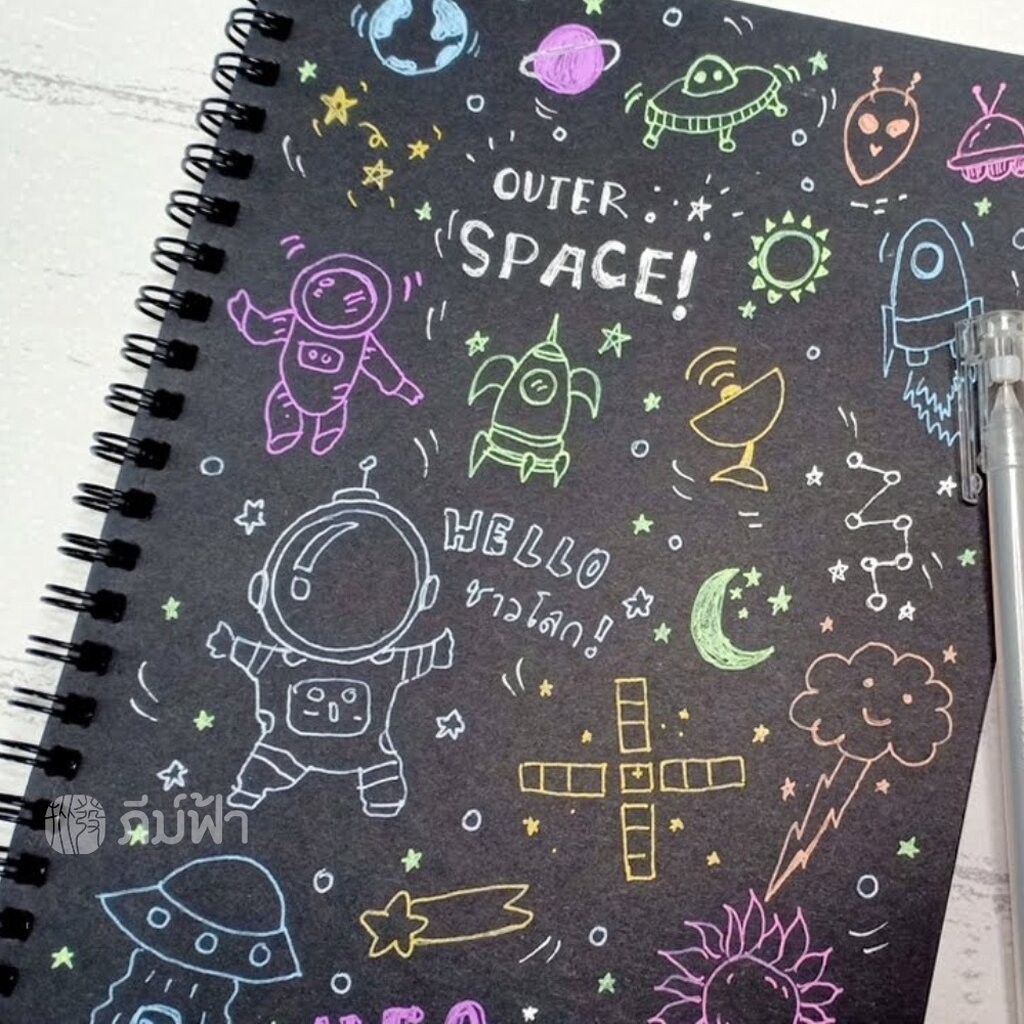 OUTER
SPACE!
HELLO
ชาวโลก!
ภีม์ฟ้า
UFO